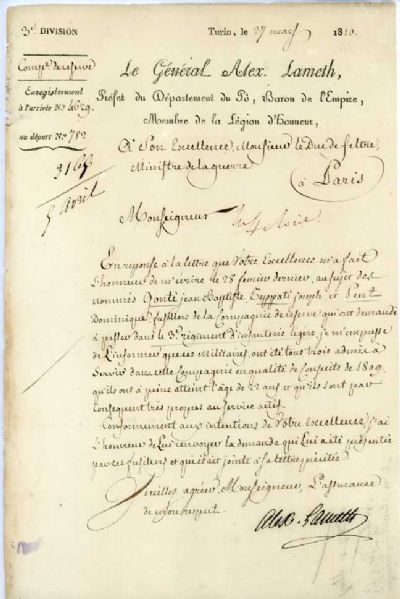 3.e DIVISION
Turin, le 27 mars 1810.
Comp.e de réserve
Enregistrement
à l'arrivée N.º 4629.
au départ N.º 782
3165
5 avril
Le Général Alex. Lameth,
Préfet du Département du Pô, Baron de l'Empire,
Membre de la Légion d'honneur,
A Son Excellence, Monsieur le Duc de feltre
Ministre de la guerre
à Paris
Monseigneur
En reponse à la lettre que Votre Excellence m'a fait
l'honneur de m'écrire le 28 février dernier, au sujet des
nommés jean Baptiste joseph et
Dominique fusiliers de la Compagnie de réserve qui ont demandé
à passer dans le 3.e régiment d'infanterie légère, j'ai m'empresse
de l'informer que ces militaires, ont été tous trois admis à
Servir dans cette Compagnie en qualité de Conscrits de 1809.
qu'ils ont à peine atteint l'âge de 22 ans et qu'ils sont par
Conséquent très propres au Service actif.
Conformément aux intentions de Votre Excellence, j'ai
l'honneur de lui renvoyer la demande qui lui a été présentée
par ces fusiliers et qui était jointe à sa lettre précitée.
Veuillez agréer, Monseigneur, l'assurance
de mon respect.
Alex. Lameth